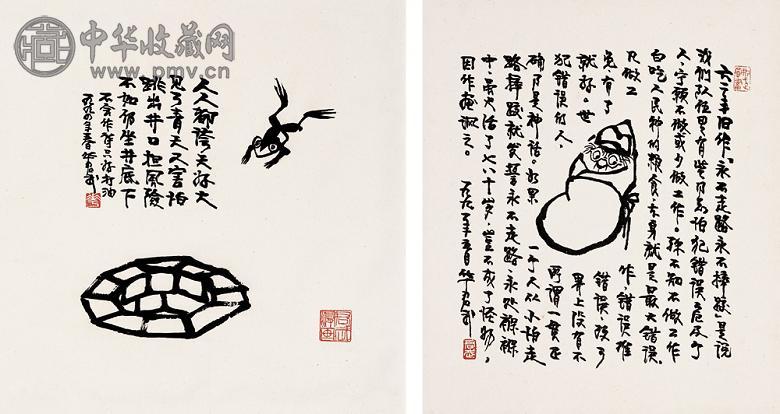 中华收藏网
www.pmv.cn
人人都誇天好大
见了青天又害怕
跳出井口担風險
不如仍坐井底下
不会作诗只好打油
华君武
六二年旧作「永不走路永不摔跤」是说
我们队伍里有些同志怕犯错误
人,宁愿不做或少做工作。殊不知不做工作
白吃人民种的粮食,本身就是最大错误。
凡做工作,错误难
免,有了错误,改了
就好。世界上没有不
犯错误的人,所谓一贯正
确乃是神话。如果一个人从小怕走
路摔跤就发誓永不走路,永处襁褓
中,活了七八十岁,岂不成了怪物,
因作 之。一九九 年五月 华君武